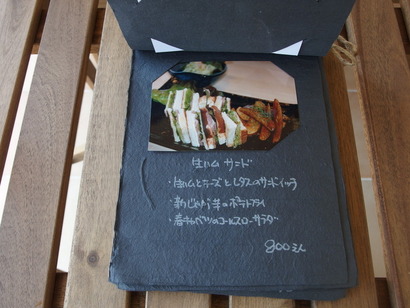 生ハム サンド
・生ハムとチーズとレタスのサンドイッチ
・新じゃが芋のポテトフライ
・春キャベツのコールスローサラダ
800えん